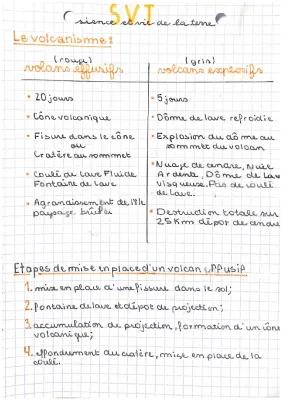 SVT
science et vie de la terre
Le volcanisme:
(rouge)
volcans effusifs
(gris)
volcans explosifs
• 20 jours
• Cône volcanique
• Fissure dans le cône
ou
Cratère au sommet
• Coulé de Lave Fluide
Fontaine de Lave
• Agrandissement de l'île
paysage brûlé
• 5 jours
• Dôme de lave refroidie
• Explosion du dôme au
sommet du volcan
• Nuage de cendre, Nuée
Ardente, Dôme de Lave
visqueuse. Pas de coulé
de Lave.
• Destruction totale sur
25 Km dépot de cendre
Etapes de mise en place d'un volcan effusif
1. mise en place d'une fissure dans le sol;
2. fontaine de lave et dépot de projection;
3. accumulation de projection, formation d'un cône
volcanique;
4. effondrement du cratère, mise en place de la
coulé.